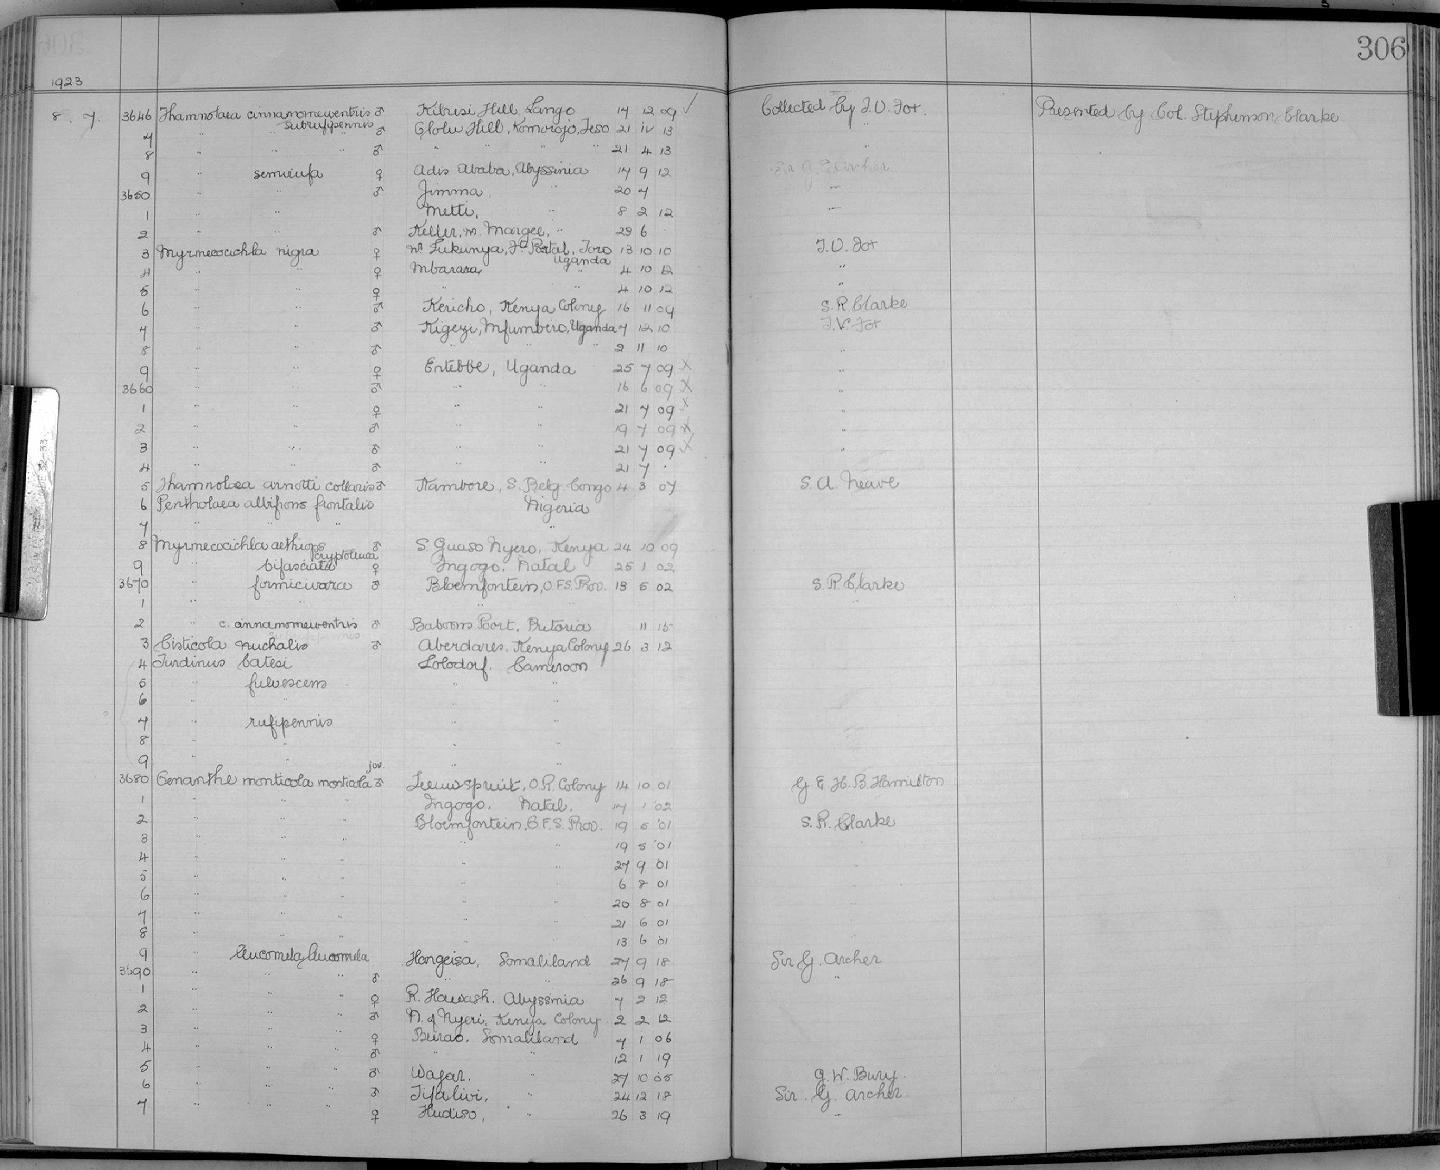 306
1923
8 7. 3646 Thamnolaea cinnamomeiventris ♂ Kibusi Hill, Lango 14 12 09 ✓ Collected by J.V. Fox. Presented by Col. Stephenson Clarke
subrufipennis
7 " " " ♂ Hill, Komorojo, Teso 21 iv 13 "
8 " " " ♂ " " " " 21 4 13
9 " semirufa ♀ Adis Ababa, Abyssinia 14 9 12 Sir G. Archer
3650 " " ♂ Jimma, " 20 4 "
1 " " Metti, " 8 2 12 "
2 " ♂ Mangee, " 29 6
3 Myrmecocichla nigra ♀ Ft Portal, Toro 13 10 10 J.V. Fox
Uganda
4 " " ♀ Mbarara " 4 10 12 "
5 " " ♀ " " 4 10 12
6 " " ♂ Kericho, Kenya Colony 16 11 09 S.R. Clarke
7 " " ♂ Kigezi, Mfumbiro, Uganda 7 12 10 J.V. Fox
8 " " ♂ " " " 2 11 10 "
9 " " ♀ Entebbe, Uganda 25 7 09 X "
3660 " " ♂ " " 16 6 09 X "
1 " " ♀ " " 21 7 09 X "
2 " " ♂ " " 19 7 09 X "
3 " " ♂ " " 21 7 09 X "
4 " " ♂ 21 7 .
5 Thamnolaea arnotti collaris ♂ Kambove, S. Belg. Congo 4 3 07 S.A. Neave
6 Pentholaea albifrons frontalis Nigeria
7 " " " "
8 Myrmecocichla aethiops ♂ S. Guaso Nyero, Kenya 24 10 09
cryptoleuca
9 " bifasciata ♀ Ingogo, Natal 25 1 02
3670 " formicivora ♂ Bloemfontein, O.F.S. Prov. 13 5 02 S.R. Clarke
1 " " " "
2 " cinnamomeiventris ♂ Baboons Poort, Pretoria 11 15
3 Cisticola nuchalis ♂ Aberdares, Kenya Colony 26 3 12
4 Turdinus batesi Lolodorf, Cameroon
5 " fulvescens " "
6 " " " "
7 " rufipennis " "
8 " " " "
9 " " "
juv.
3680 Oenanthe monticola monticola ♂ Leeuwspruit, O.R. Colony 14 10 01 G.E.H.B. Hamilton
1 " " " Ingogo, Natal, 14 1 02
2 " " " Bloemfontein, O.F.S. Prov. 19 5 01 S.R. Clarke
3 " " " " " 19 5 01
4 " " " " " 27 9 01
5 " " " " " 6 8 01
6 " " " " " 20 8 01
7 " " " " " 21 6 01
8 " " " " " 13 6 01
9 " leucomela leucomela Hargeisa, Somaliland 27 9 18 Sir G. Archer
3690 " " " ♂ " " 26 9 18 "
1 " " " ♀ R. Hawash, Abyssinia 7 2 12
2 " " " ♂ N. of Nyeri, Kenya Colony 2 2 12
3 " " " ♀ Burao, Somaliland 7 1 06
4 " " " ♂ " " 12 1 19
5 " " " ♂ Wagar, 27 10 05 G.W. Bury
6 " " " ♂ " 24 12 18 Sir G. Archer
7 " " " ♀ Hudiso, " 26 3 19 "